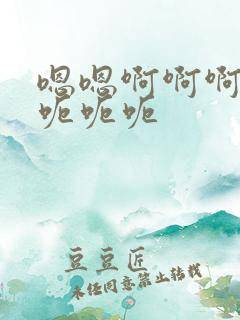 嗯嗯啊啊啊
呃呃呃
豆豆匠
未经同意禁止转载